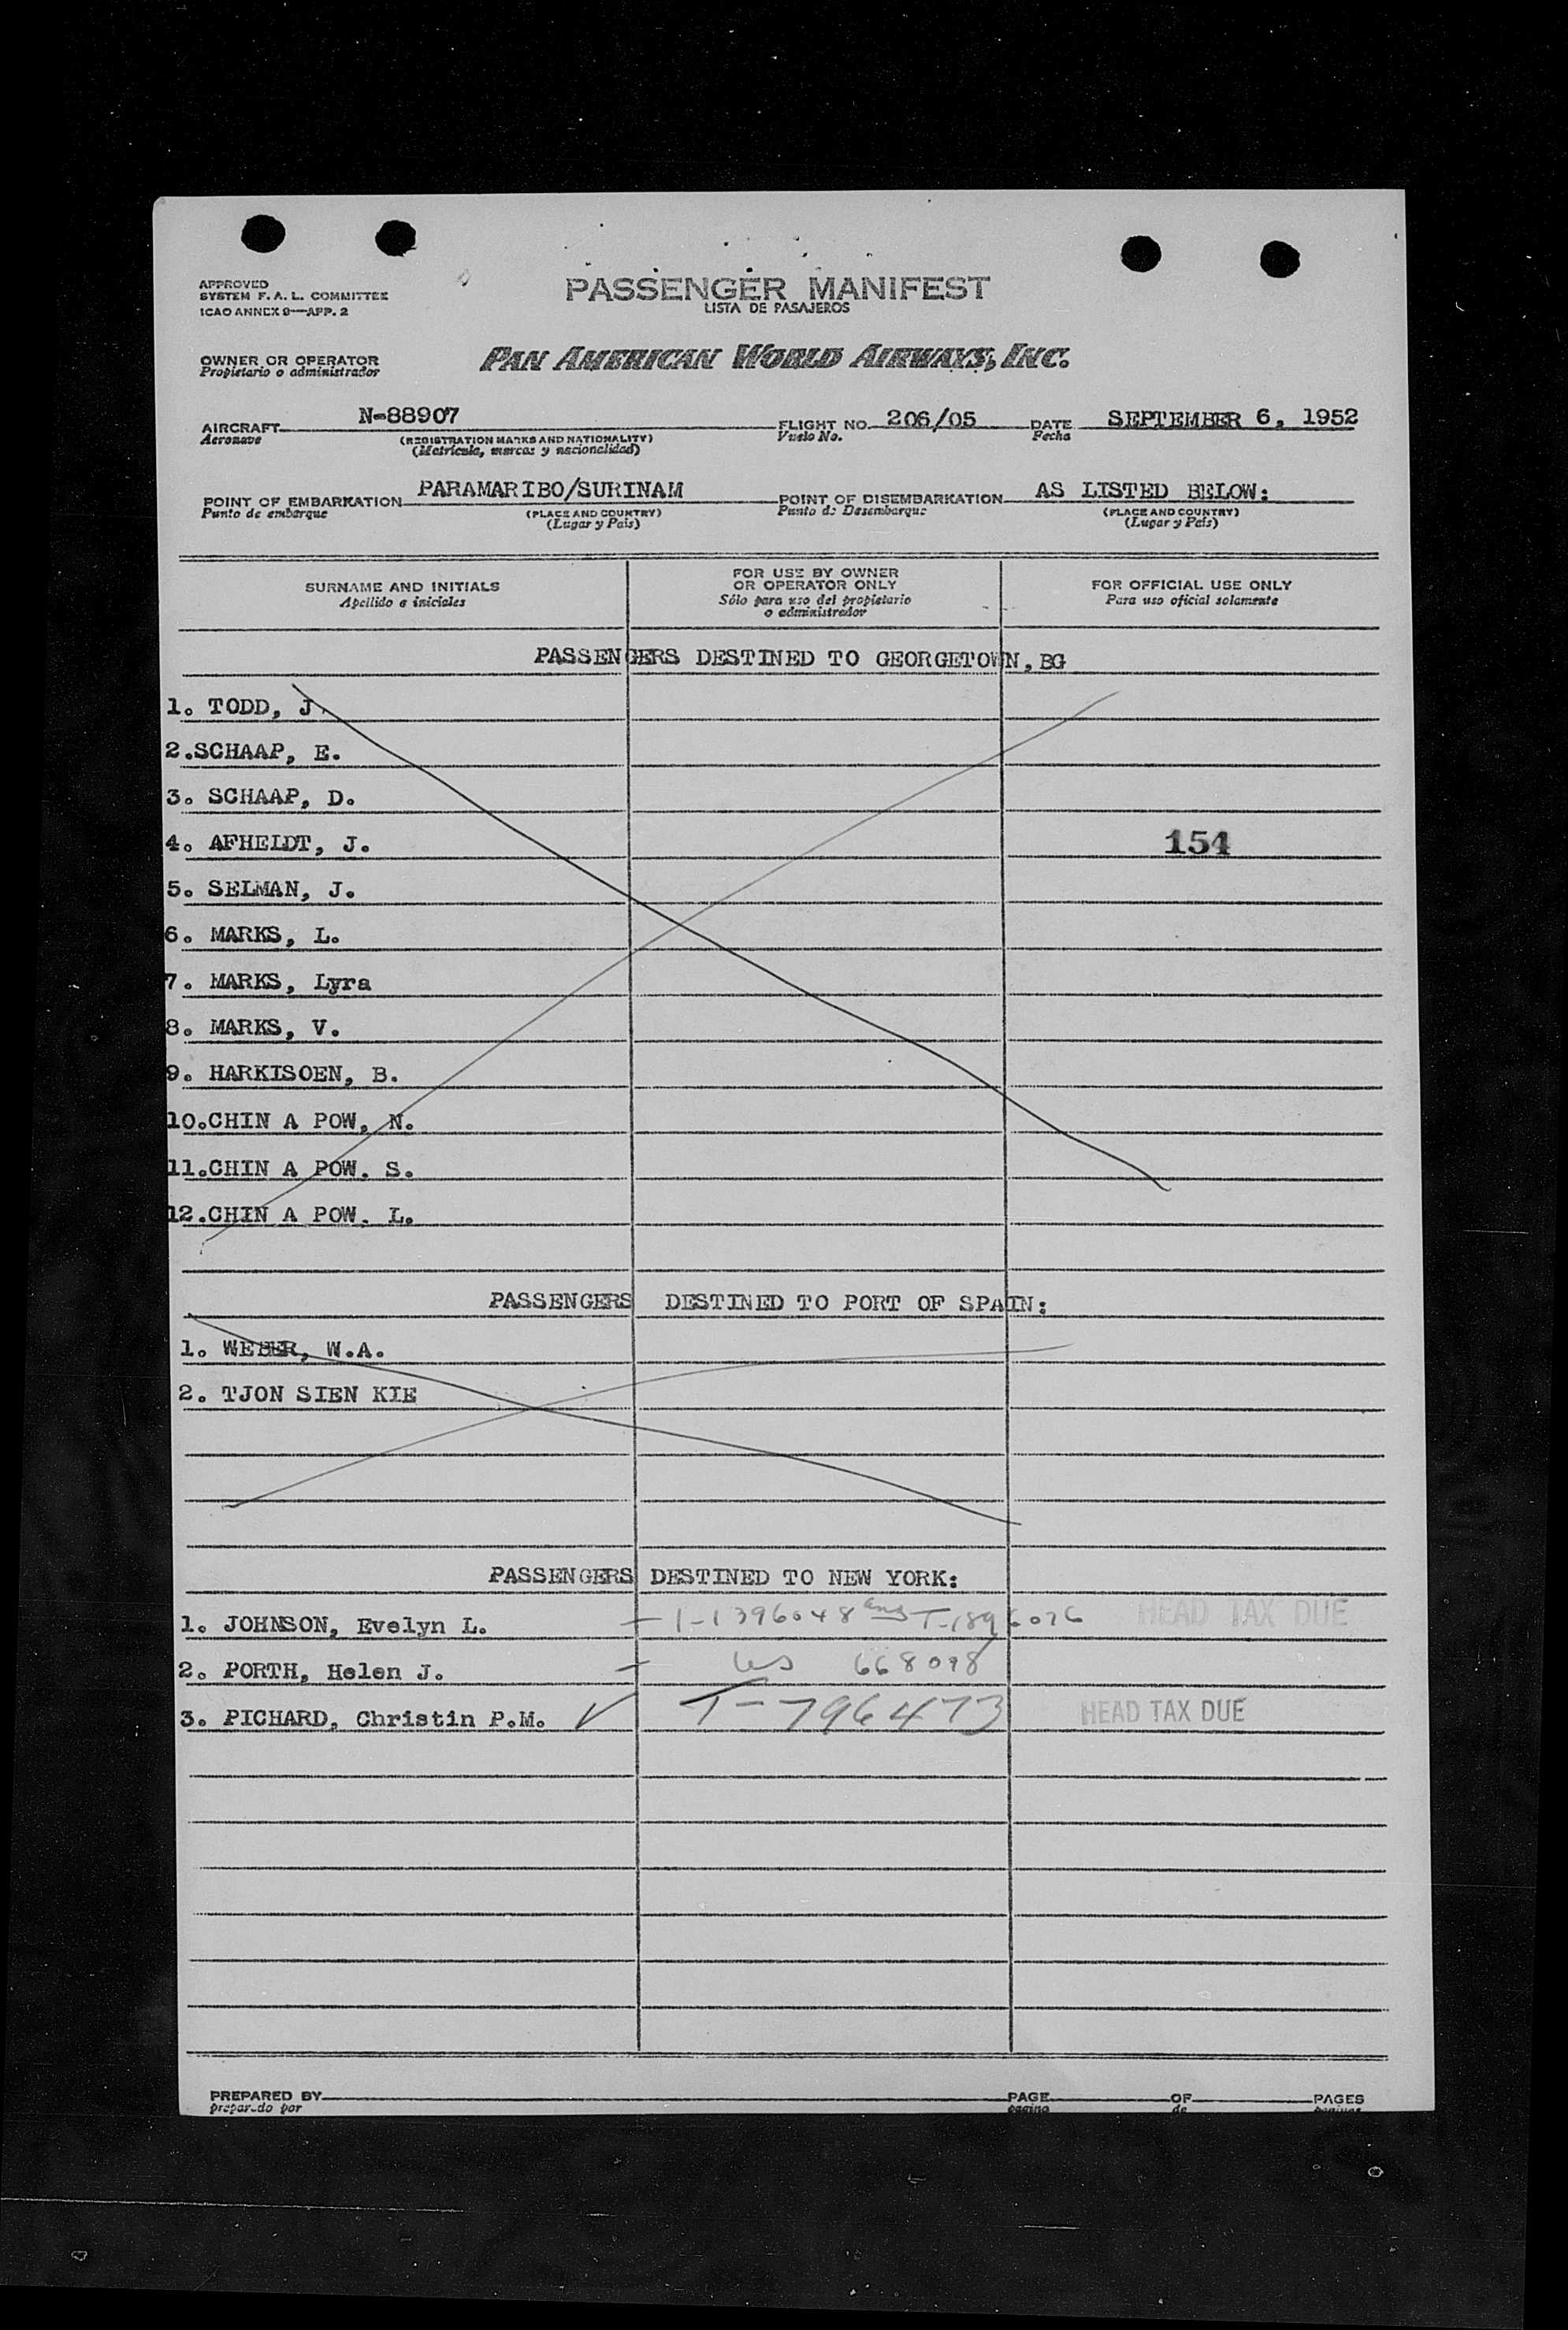 APPROVED
SYSTEM F. A. L. COMMITTEE
ICAO ANNEX 9—APP. 2
PASSENGER MANIFEST
LISTA DE PASAJEROS
OWNER OR OPERATOR
Propietario o administrador
PAN AMERICAN WORLD AIRWAYS, INC.
AIRCRAFT N-88907 FLIGHT NO. 206/05 DATE SEPTEMBER 6, 1952
Aeronave (REGISTRATION MARKS AND NATIONALITY) Vuelo No. Fecha
(Matrícula, marcas y nacionalidad)
POINT OF EMBARKATION PARAMARIBO/SURINAM POINT OF DISEMBARKATION AS LISTED BELOW:
Punto de embarque (PLACE AND COUNTRY) Punto de Desembarque (PLACE AND COUNTRY)
(Lugar y País) (Lugar y País)
SURNAME AND INITIALS
Apellido e iniciales
FOR USE BY OWNER
OR OPERATOR ONLY
Sólo para uso del propietario
o administrador
FOR OFFICIAL USE ONLY
Para uso oficial solamente
PASSENGERS DESTINED TO GEORGETOWN, BG
1. TODD, J.
2.SCHAAP, E.
3. SCHAAP, D.
4. AFHELDT, J. 154
5. SELMAN, J.
6. MARKS, L.
7. MARKS, Lyra
8. MARKS, V.
9. HARKISOEN, B.
10.CHIN A POW, N.
11.CHIN A POW. S.
12.CHIN A POW. L.
PASSENGERS DESTINED TO PORT OF SPAIN:
1. WEBER, W.A.
2. TJON SIEN KIE
PASSENGERS DESTINED TO NEW YORK:
1. JOHNSON, Evelyn L. — T-1396048 HEAD TAX DUE
2. PORTH, Helen J. — US 668098
3. PICHARD, Christin P.M. ✓ T-796473 HEAD TAX DUE
PREPARED BY PAGE OF PAGES
preparado por pagina de paginas